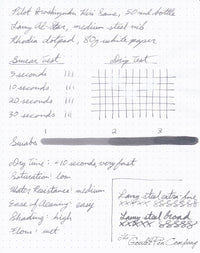 Pilot Iroshizuku Kiri Same, 50 ml bottle
Lamy Al-Star, medium steel nib
Rhodia dotpad, 80g white paper
Smear Test
Dry Test
5 seconds
10 seconds
20 seconds
30 seconds
Swabs
1 2 3
Dry Time: ~10 seconds, very fast
Saturation: low
Water Resistance: medium
Ease of cleaning: easy
Shading: high
Flow: wet
Lamy steel extra-fine
Lamy steel broad
The Goulet Pen Company